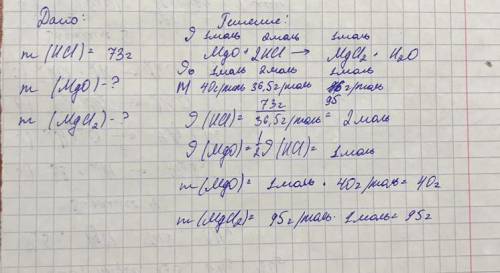 Дано:
m (HCl) = 73г
m (MgO) - ?
m (MgCl2) - ?
Решение:
ν 1моль 2моль 1моль
MgO + 2HCl → MgCl2 + H2O
ν0 1моль 2моль 1моль
M 40г/моль 36,5г/моль г/моль
95
ν (HCl) = 73г / 36,5г/моль = 2моль
ν (MgO) = 1/2 ν (HCl) = 1моль
m (MgO) = 1моль · 40г/моль = 40г
m (MgCl2) = 95г/моль · 1моль = 95г